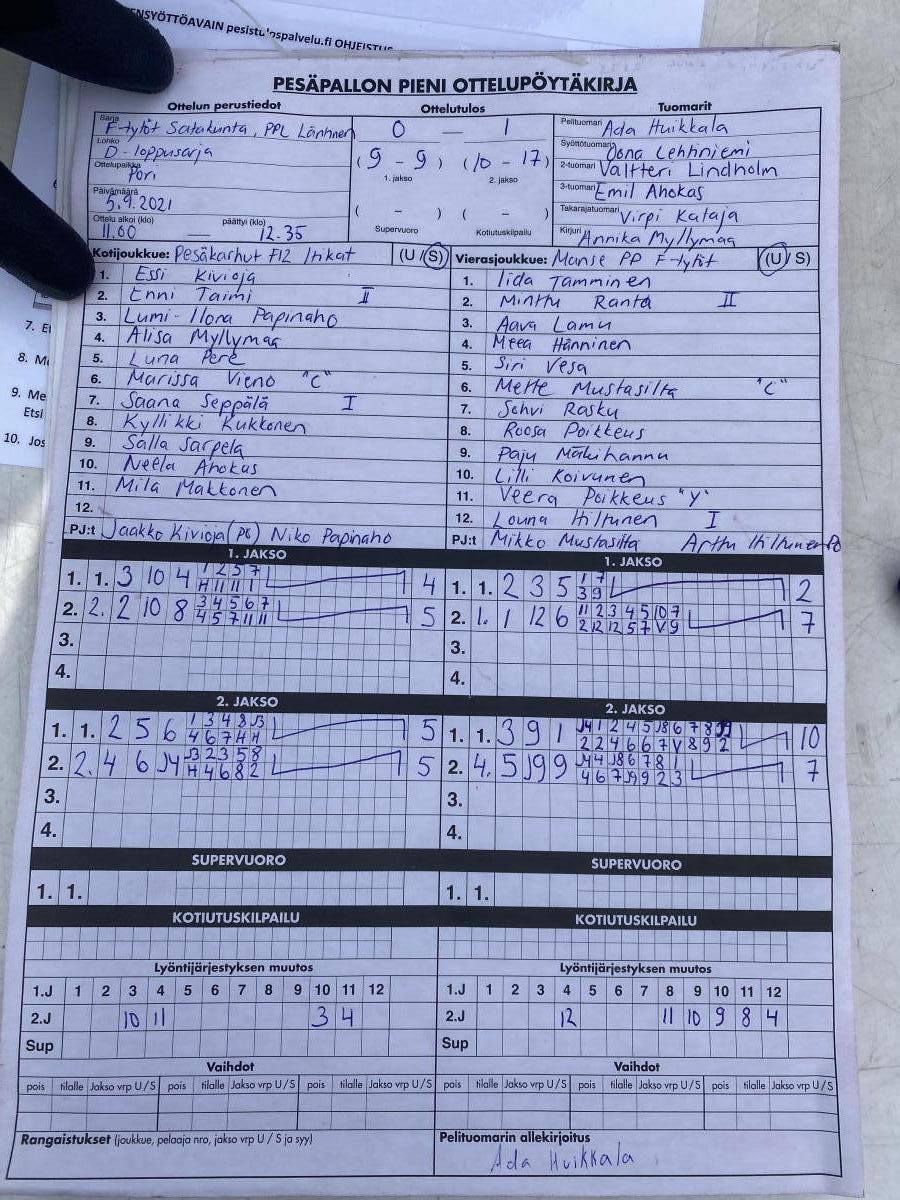 ENSYÖTTÖAVAIN pesistulospalvelu.fi OHJEISTUS
7. Et
8. Me
9. Me
Etsi
10. Jos
PESÄPALLON PIENI OTTELUPÖYTÄKIRJA
Ottelun perustiedot Ottelutulos Tuomarit
Sarja F-tytöt Satakunta, PPL Läntinen
Lohko D-loppusarja
Ottelupaikka Pori
Päivämäärä 5.9.2021
Ottelu alkoi (klo) 11.00 — päättyi (klo) 12.35
0 — 1
(9 - 9) (10 - 17)
1. jakso 2. jakso
( - ) ( - )
Supervuoro Kotiutuskilpailu
Pelituomari Ada Huikkala
Syöttötuomari Oona Lehtiniemi
2-tuomari Valtteri Lindholm
3-tuomari Emil Ahokas
Takarajatuomari Virpi Kataja
Kirjuri Annika Myllymaa
Kotijoukkue: Pesäkarhut F12 Itikat (U/S)
1. Essi Kivioja
2. Enni Taimi II
3. Lumi-Ilona Papinaho
4. Alisa Myllymaa
5. Luna Pere
6. Marissa Vieno "C"
7. Saana Seppälä I
8. Kyllikki Kukkonen
9. Salla Sarpela
10. Neela Ahokas
11. Mila Makkonen
12.
PJ:t Jaakko Kivioja (PG) Niko Papinaho
Vierasjoukkue: Manse PP F-tytöt (U/S)
1. Iida Tamminen
2. Minttu Ranta II
3. Aava Lamu
4. Meea Hänninen
5. Siri Vesa
6. Mette Mustasilta "C"
7. Sohvi Rasku
8. Roosa Poikkeus
9. Paju Mäkihannu
10. Lilli Koivunen
11. Veera Poikkeus "Y"
12. Louna Hiltunen I
PJ:t Mikko Mustasilta Arttu Hiltunen PG
1. JAKSO 1. JAKSO
1. 1. 3 10 4 1 2 5 7 4
H 11 11 1
2. 2. 2 10 8 3 4 5 6 7 5
4 5 7 11 11
3.
4.
1. 1. 2 3 5 1 7 2
3 9
2. 1. 1 12 6 11 2 3 4 5 10 7 7
2 12 12 5 7 V 9
3.
4.
2. JAKSO 2. JAKSO
1. 1. 2 5 6 1 3 4 8 J3 5
4 6 7 4 H
2. 2. 4 6 J4 J3 2 3 5 8 5
H 4 6 8 2
3.
4.
1. 1. 3 9 1 J4 1 2 4 5 J8 6 7 8 J9 10
2 2 4 6 6 7 V 8 9 2
2. 4. 5 J9 9 J4 4 J8 6 7 8 1 7
4 6 7 J9 9 2 3
3.
4.
SUPERVUORO SUPERVUORO
1. 1. 1. 1.
KOTIUTUSKILPAILU KOTIUTUSKILPAILU
Lyöntijärjestyksen muutos Lyöntijärjestyksen muutos
1.J 1 2 3 4 5 6 7 8 9 10 11 12 1.J 1 2 3 4 5 6 7 8 9 10 11 12
2.J 10 11 3 4 2.J 12 11 10 9 8 4
Sup Sup
Vaihdot Vaihdot
pois tilalle Jakso vrp U/S pois tilalle Jakso vrp U/S pois tilalle Jakso vrp U/S pois tilalle Jakso vrp U/S pois tilalle Jakso vrp U/S pois tilalle Jakso vrp U/S
Rangaistukset (joukkue, pelaaja nro, jakso vrp U / S ja syy) Pelituomarin allekirjoitus
Ada Huikkala